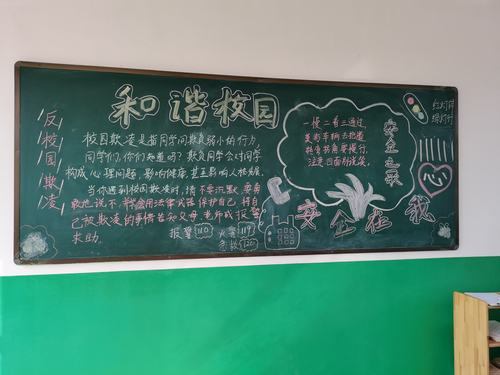 和谐校园
反校园欺凌
校园欺凌是指同学间欺负弱小的行为,
同学们,你们知道吗?欺负同学会对同学
构成心理问题,影响健康,甚至影响人格发展。
当你遇到校园欺凌时,请不要沉默,要勇
敢地说不,学会用法律武器保护自己,将自
己被欺凌的事情告知父母、老师或报警
求助。
报警110 火警119
急救120
一慢二看三通过,
莫与车辆去抢道
转弯
注意四面别说笑。
安全之歌
红灯停
绿灯行
心
安全在我